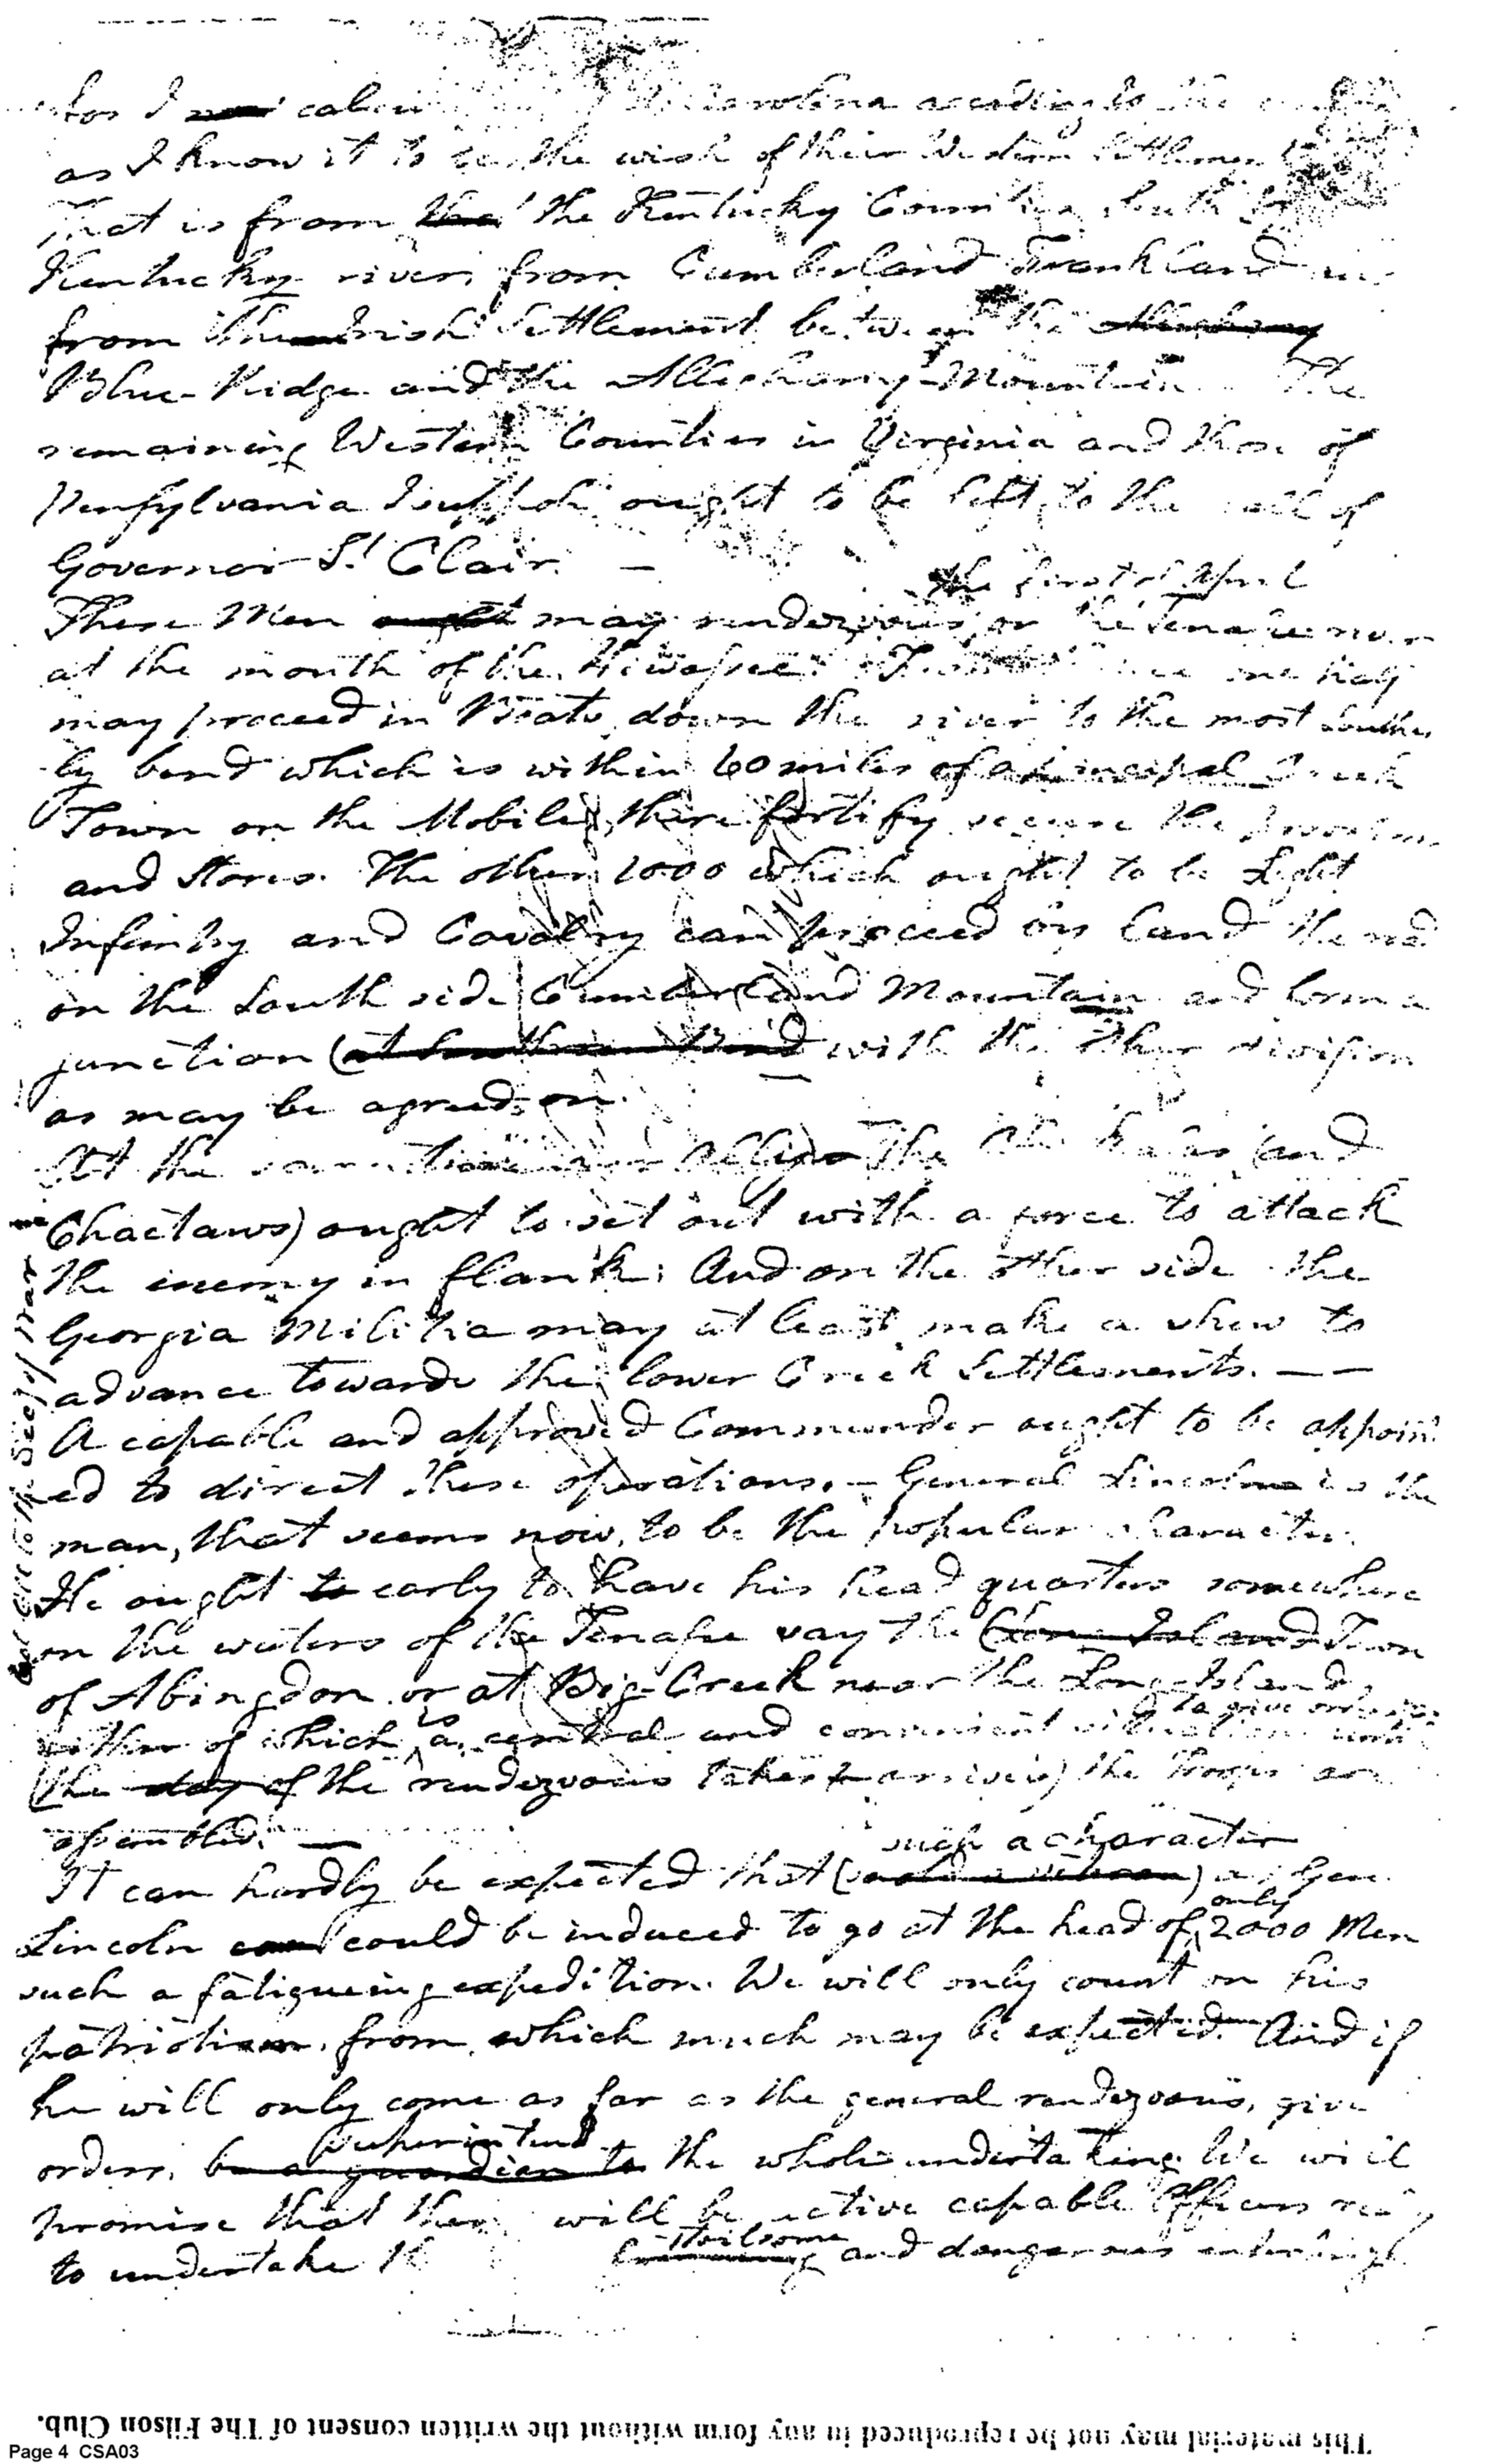 for I calcu Carolina according to the
as I know it to be the wish of their Western Settlements
That is from the the Kentucky Counties South
Kentucky river, from Cumberland Frankland
from the Irish Settlement between the Alleghany
Blue-Ridge and the Alleghany-Mountain. The
remaining Western Counties in Virginia and those of
Pensylvania I suppose ought to be left to the call of
Governor St Clair. —
the first of April
These Men ought may rendezvous on the Tenasee river
at the mouth of the Hiwassee. one half
may proceed in Boats down the river to the most Souther
ly bend which is within 60 miles of a principal Creek
Town on the Mobile, there fortify secure the provisions
and Stores. The other 1000 which ought to be Light
Infentry and Cavalry can proceed by land the road
on the South side Cumberland Mountain and form a
junction (at Southern Bend with the other division
as may be agreed on.
At the same time our Allies The Chickasas (and
Chactaws) ought to set out with a force to attack
the enemy in flank: And on the other side the
Georgia Militia may at least make a shew to
advance towards the lower Creek Settlements. — —
A capable and approved Commander ought to be appoint
ed to direct these operations. — General Lincoln is the
man, that seems now, to be the popular character.
He ought to early to have his head quarters somewhere
on the waters of the Tenasee say the (Long Island Town
of Abingdon or at Big-Creek near the Long-Island,
to give orders
either of which is a central and convenient situation until
(the day of the rendezvous takes arrives) the Troops are
assembled. —
such a character
It can hardly be expected that ( ) as Gen.
only
Lincoln could be induced to go at the head of 2000 Men
such a fatigueing expedition. We will only count on his
patriotism, from which much may be expected. And if
he will only come as far as the general rendezvous, give
superintend
orders, be a guardian to the whole undertaking We will
promise that there will be active capable Officers
toilsome
to undertake and dangerous
of War
This material may not be reproduced in any form without the written consent of The Filson Club.
Page 4 CSA03